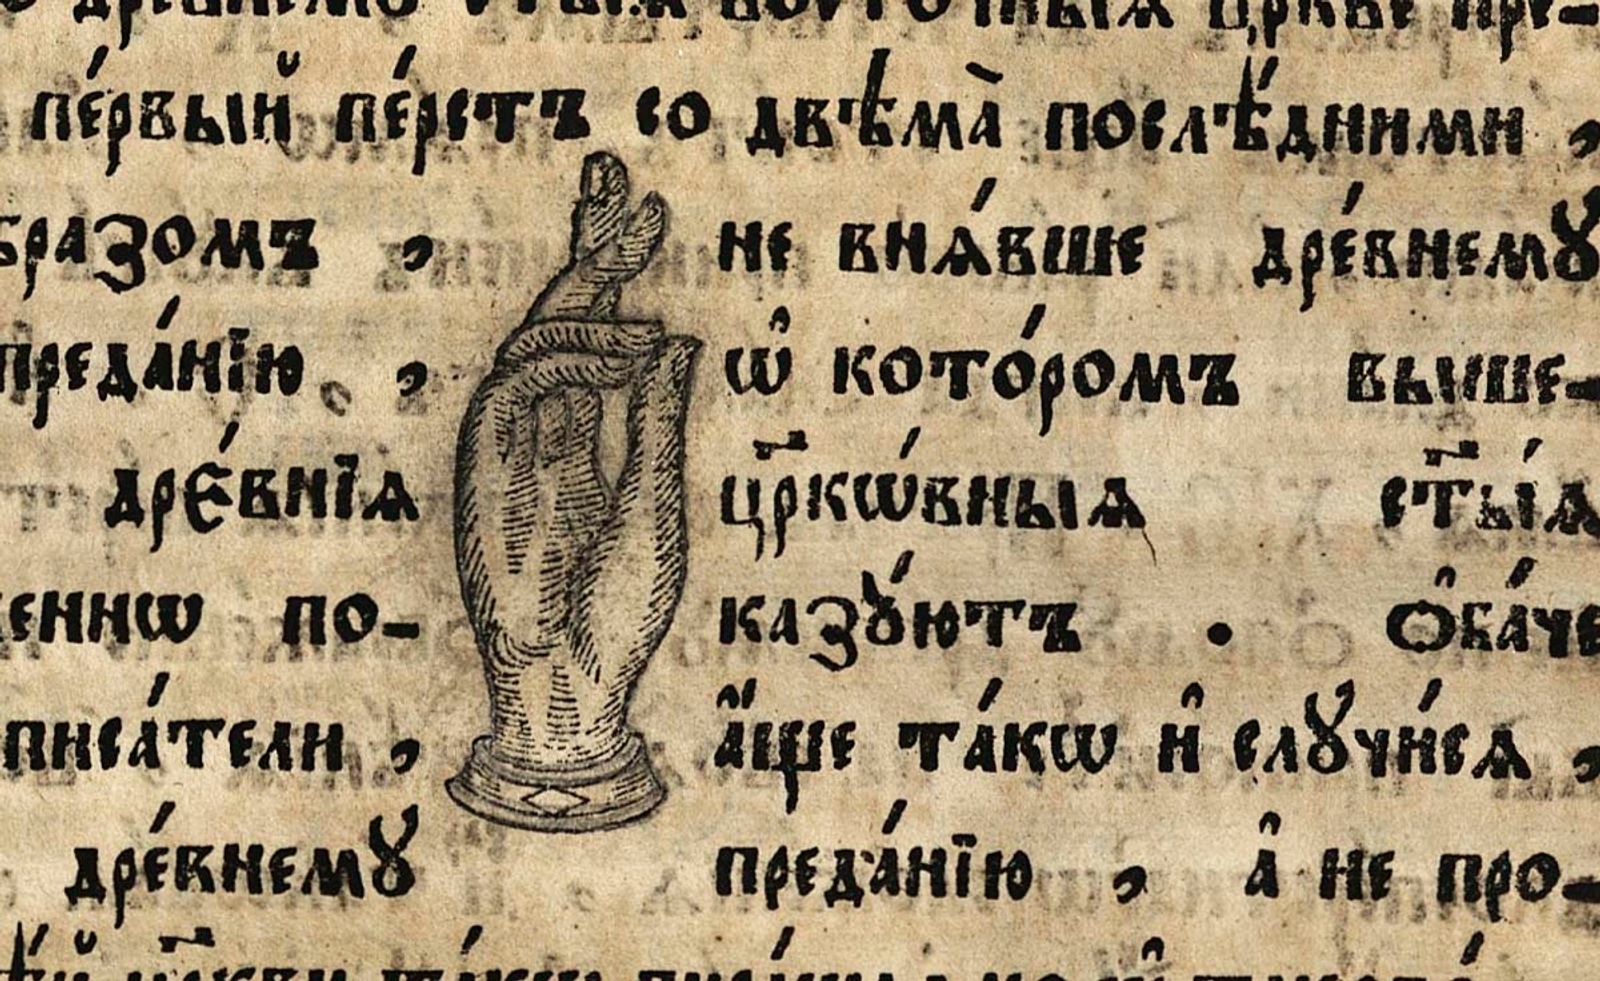 древнемꙋ восточныѧ црк҃ве пре-
пе́рвый пе́рстъ со двѣма̀ послѣ́дними ,
бразомъ , не внѧ́вше дре́внемꙋ
преда́нїю , ѡ҆ кото́ромъ выше-
дре́внїѧ цр҃кѡ́вныѧ ст҃ы́ѧ
еннѡ по- казꙋ́ютъ . ѻ҆ба́че
писа́тели , а҆́ще та́кѡ и҆ слꙋчи́сѧ ,
дре́внемꙋ преда́нїю , а҆ не про-